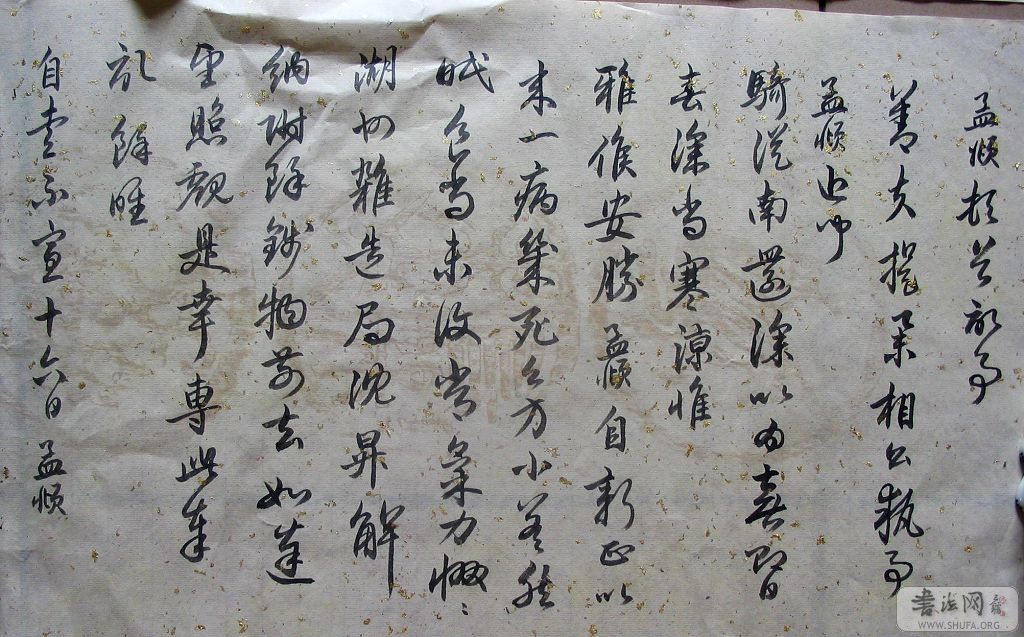 孟頫頓首記事
善夫提舉相公執事
孟頫近聞
騎從南還深以為喜即日
春深尚寒諒惟
雅候安勝孟頫自新正以
來一病幾死今方小差然
眠食尚未復常氣力惙〻
湖州雜造局沈升解
納附餘錢物前去如達
望照覷是幸專此奉
記餘唯
自愛不宣十六日孟頫
书法网
WWW.SHUFA.ORG